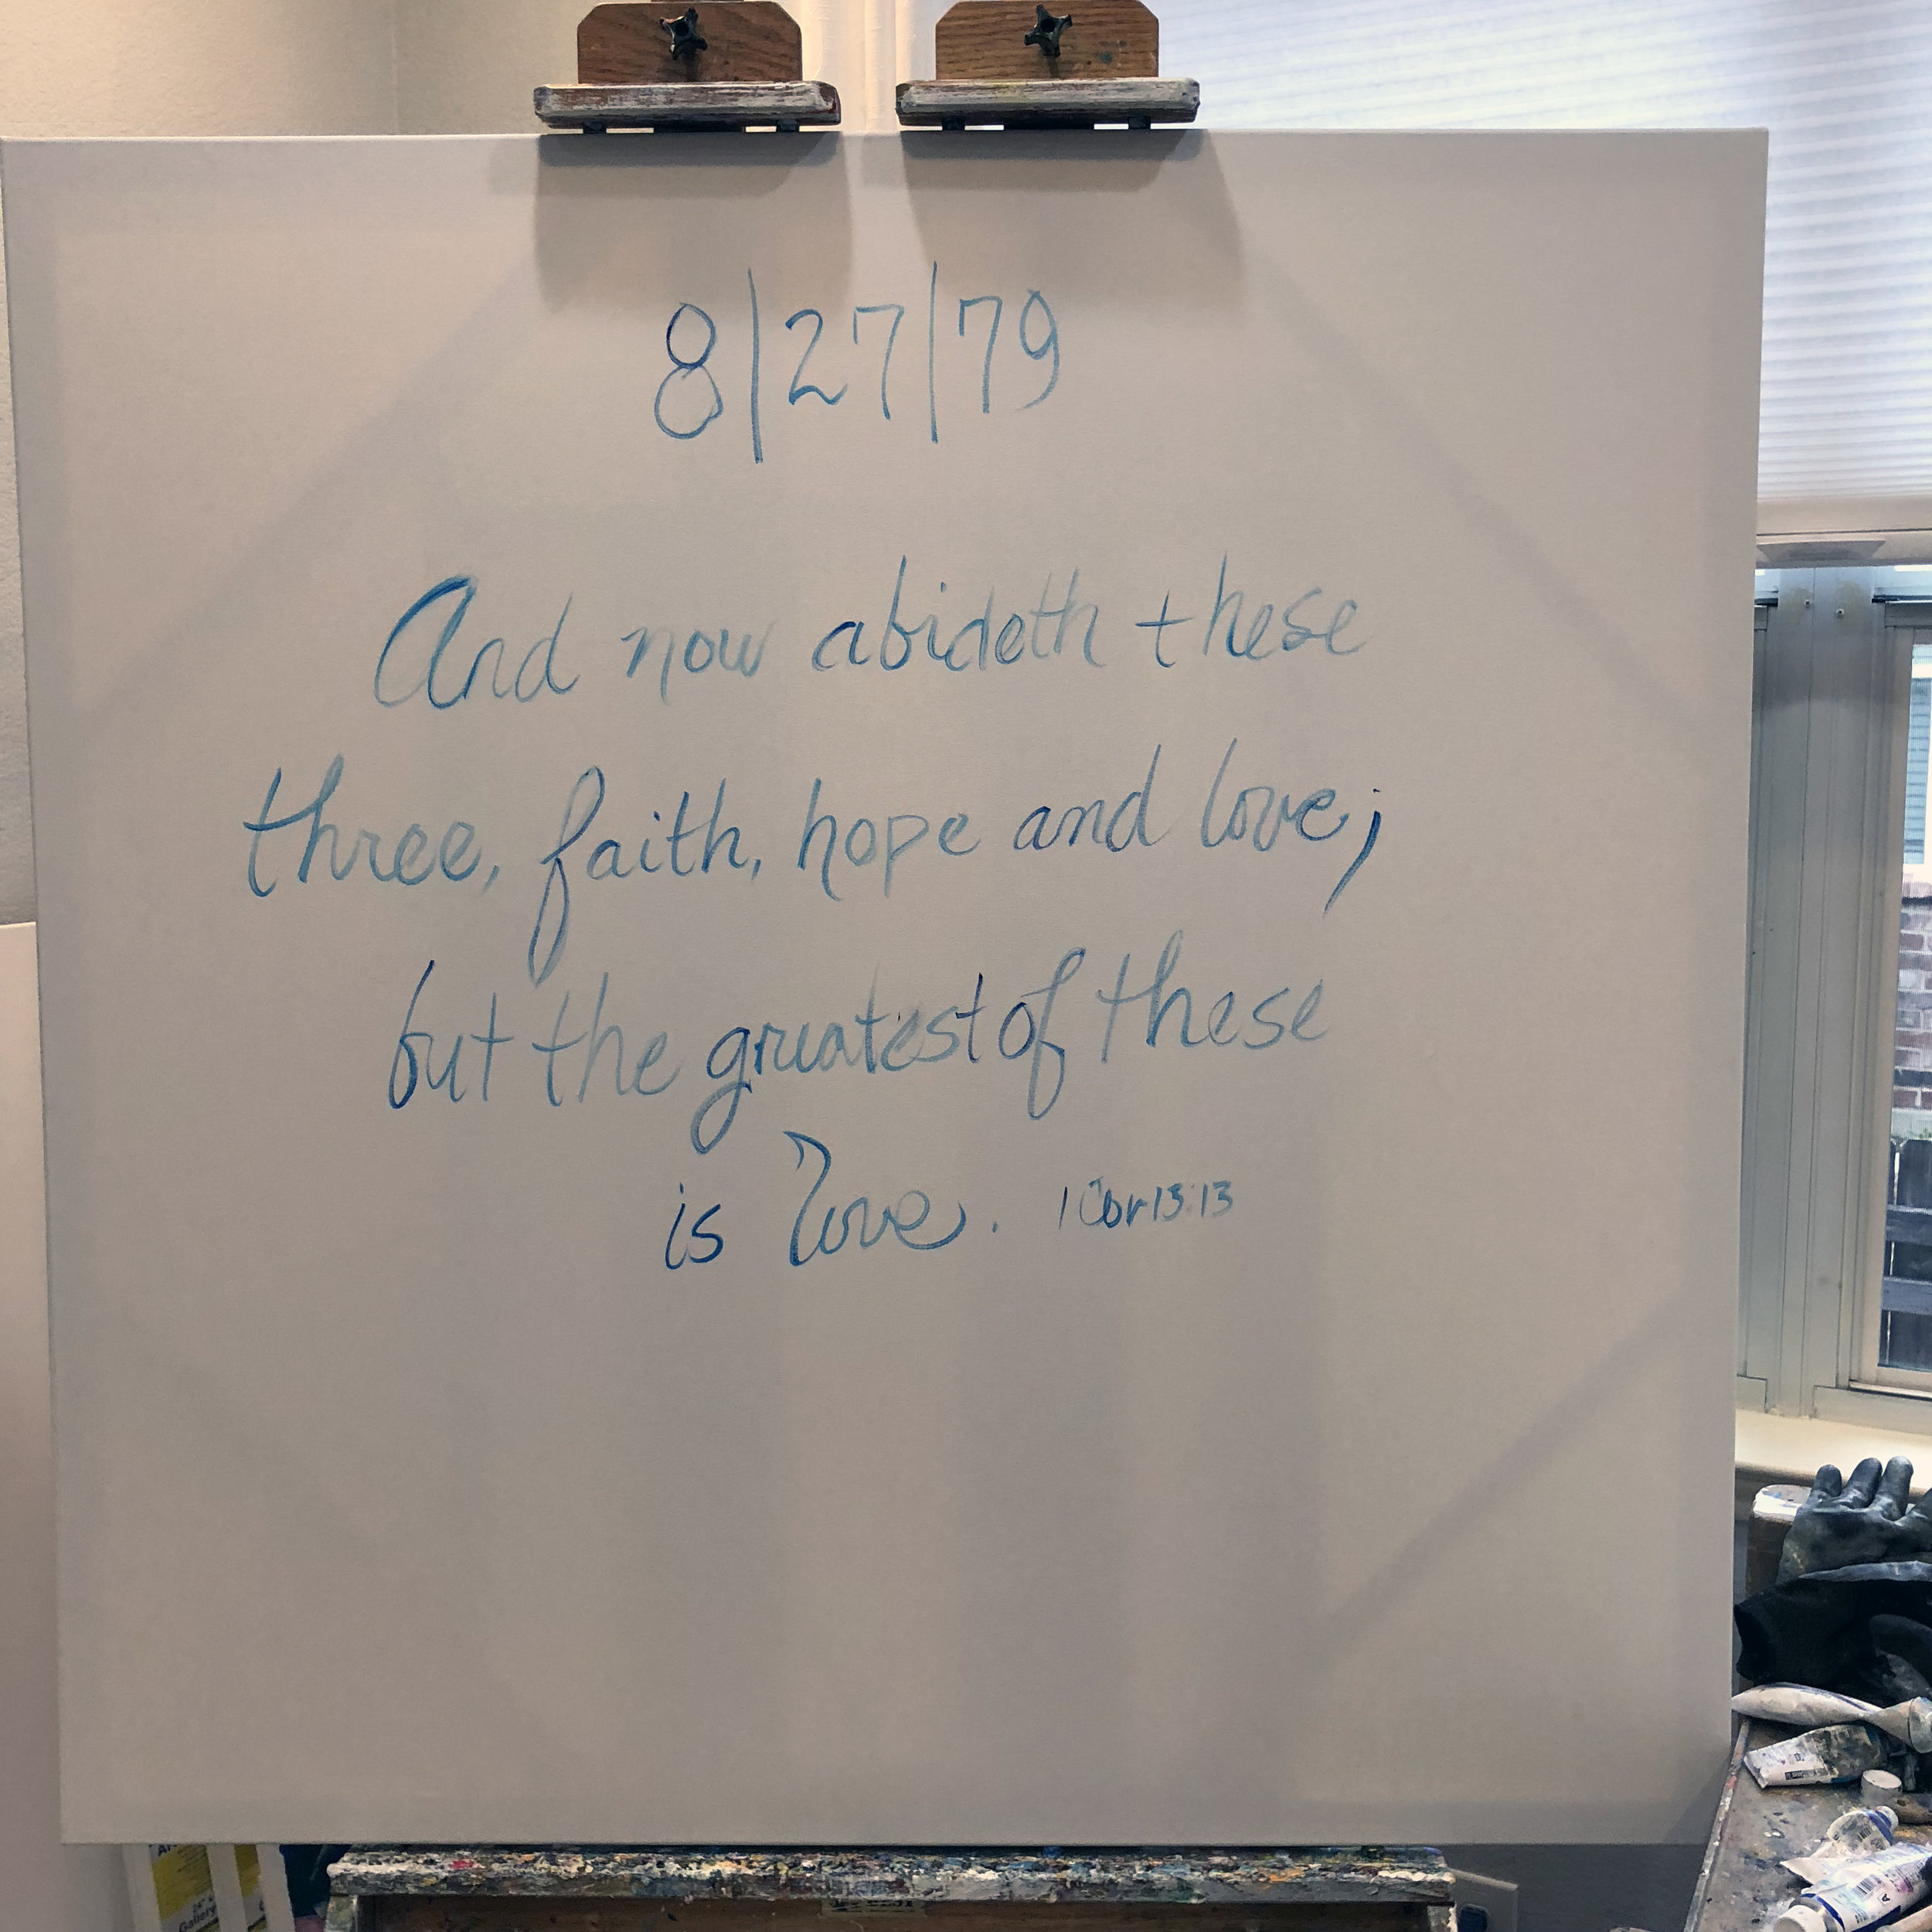 8/27/79
And now abideth these
three, faith, hope and love;
but the greatest of these
is love. 1 Cor 13:13